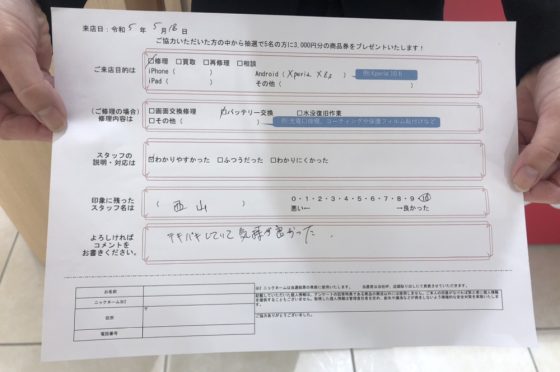 来店日：令和 5 年 5 月 18 日
ご協力いただいた方の中から抽選で5名の方に3,000円分の商品券をプレゼントいたします！
ご来店目的は
☑修理 □買取 □再修理 □相談
iPhone（ ） Android（Xperia X Ⅱ）
iPad（ ） その他（ ）
（ご修理の場合）
修理内容は
□画面交換修理 ☑バッテリー交換 □水没復旧作業
□その他（ ）
スタッフの
説明・対応は
☑わかりやすかった □ふつうだった □わかりにくかった
印象に残った
スタッフ名は
（ 西山 ）
0・1・2・3・4・5・6・7・8・9・10
悪い← →良かった
よろしければ
コメントを
お書きください。
テキパキしていて気持が良かった。
お名前
ニックネーム※2
住所
〒
電話番号
ご協力ありがとうございました。